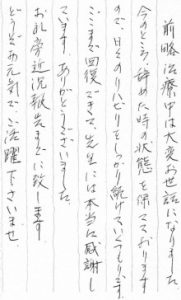 前略 治療中は大変お世話になりました
今のところ、辞めた時の状態を保っております
ので、日々のリハビリをしっかり続けていくつもりです。
ここまで回復できて先生には本当に感謝し
ています。ありがとうございました。
お礼旁近況報告までに致します
どうぞお元気でご活躍下さいませ。